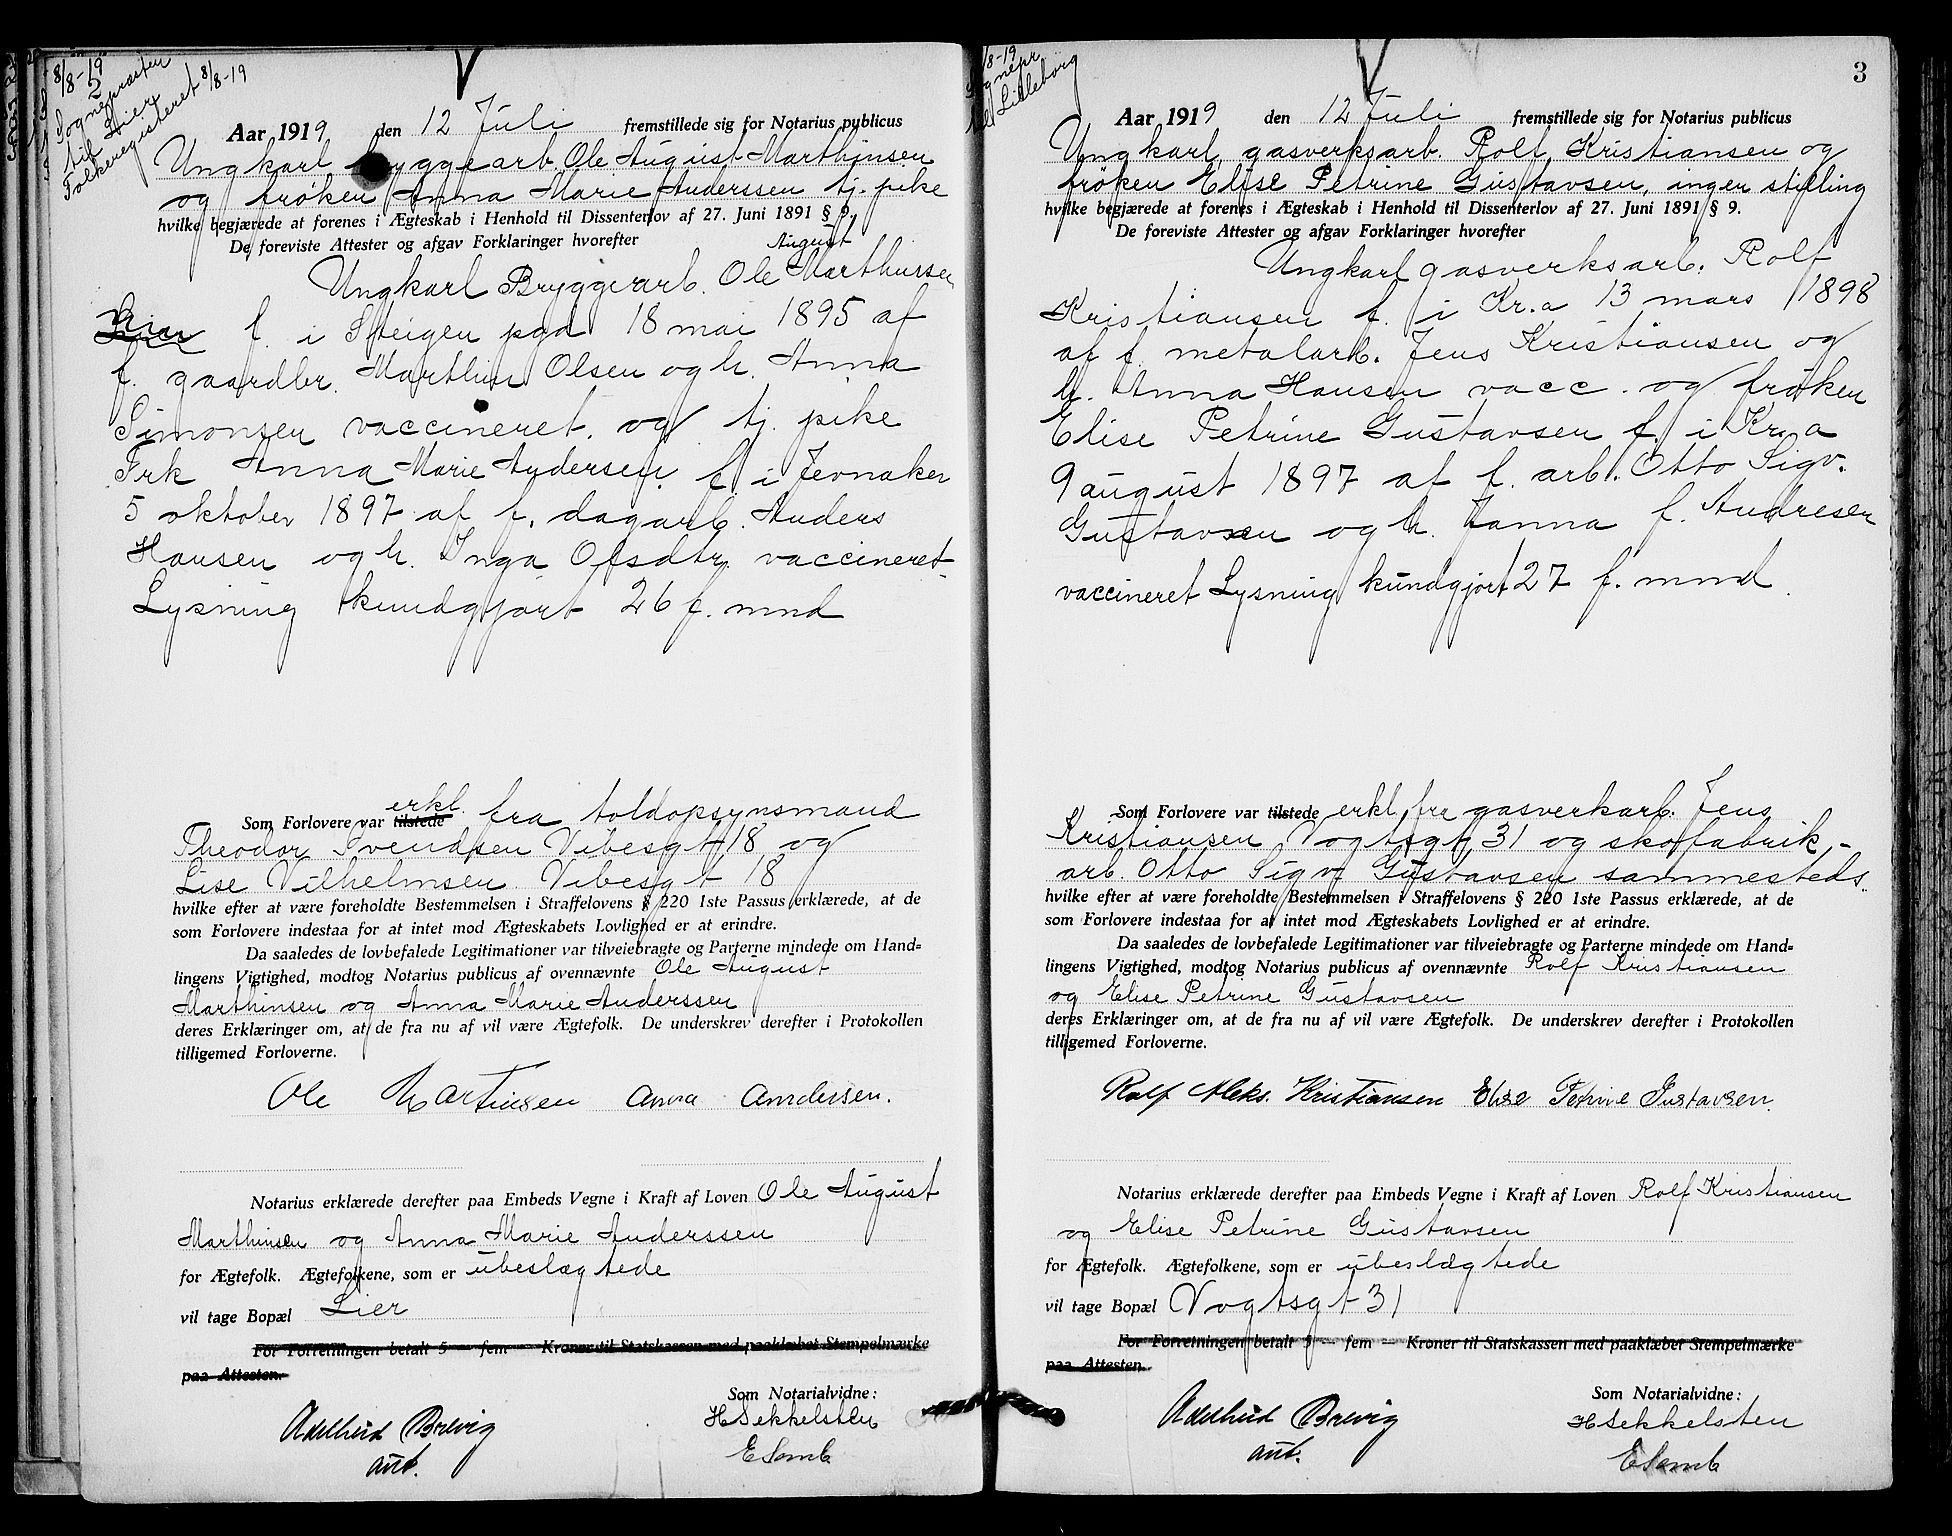 8/8-19
2
Sognepresten
til
Lier
Folkeregisteret 8/8-19
Aar 1919 den 12 Juli fremstillede sig for Notarius publicus
Ungkarl bryggearb. Ole August Marthinsen
og frøken Anna Marie Anderssen tj. pike
hvilke begjærede at forenes i Ægteskab i Henhold til Dissenterlov af 27. Juni 1891 § 9.
De foreviste Attester og afgav Forklaringer hvorefter
August
Ungkarl Bryggerarb. Ole Marthinssen
f. i Steigen pgd 18 mai 1895 af
f. gaardbr. Marthin Olsen og h. Anna
Simonsen vaccineret. og tj. pike
Frk Anna Marie Andersen f. i Jevnaker
5 oktober 1897 af f. dagarb. Anders
Hansen og h. Inga Olsdtr. vaccineret
Lysning kundgjort 26 f. mnd
erkl.
Som Forlovere var tilstede fra toldopsynsmand
Theodor Svendsen Vibesgt 18 og
Lise Vilhelmsen Vibesgt 18
hvilke efter at være foreholdte Bestemmelsen i Straffelovens § 220 1ste Passus erklærede, at de
som Forlovere indestaa for at intet mod Ægteskabets Lovlighed er at erindre.
Da saaledes de lovbefalede Legitimationer var tilveiebragte og Parterne mindede om Hand-
lingens Vigtighed, modtog Notarius publicus af ovennævnte Ole August
Marthinsen og Anna Marie Anderssen
deres Erklæringer om, at de fra nu af vil være Ægtefolk. De underskrev derefter i Protokollen
tilligemed Forloverne.
Ole Martinsen Anna Andersen.
Notarius erklærede derefter paa Embeds Vegne i Kraft af Loven Ole August
Marthinsen og Anna Marie Anderssen
for Ægtefolk. Ægtefolkene, som er ubeslægtede
vil tage Bopæl Lier
For Forretningen betalt 5 — fem — Kroner til Statskassen med paaklæbet Stempelmærke
paa Attesten.
Som Notarialvidne:
Adelheid Brevig H Sekkelsten
aut. E Lamb
8/8-19
Sognepr
til Lilleborg
3
Aar 1919 den 12 Juli fremstillede sig for Notarius publicus
Ungkarl gasverksarb. Rolf Kristiansen og
frøken Elise Petrine Gustavsen, ingen stilling
hvilke begjærede at forenes i Ægteskab i Henhold til Dissenterlov af 27. Juni 1891 § 9.
De foreviste Attester og afgav Forklaringer hvorefter
Ungkarl gasverksarb. Rolf
Kristiansen f. i Kr.a 13 mars 1898
af f. metalarb. Jens Kristiansen og
h. Anna Hansen vacc. og frøken
Elise Petrine Gustavsen f. i Kr.a
9 august 1897 af f. arb. Otto Sigv.
Gustavsen og h. Janna f. Andresen
vaccineret Lysning kundgjort 27 f. mnd.
Som Forlovere var tilstede erkl. fra gasverkarb. Jens
Kristiansen Vogtsgt 31 og skofabrik-
arb. Otto Sigv. Gustavsen sammesteds.
hvilke efter at være foreholdte Bestemmelsen i Straffelovens § 220 1ste Passus erklærede, at de
som Forlovere indestaa for at intet mod Ægteskabets Lovlighed er at erindre.
Da saaledes de lovbefalede Legitimationer var tilveiebragte og Parterne mindede om Hand-
lingens Vigtighed, modtog Notarius publicus af ovennævnte Rolf Kristiansen
og Elise Petrine Gustavsen
deres Erklæringer om, at de fra nu af vil være Ægtefolk. De underskrev derefter i Protokollen
tilligemed Forloverne.
Rolf Aleks. Kristiansen Elise Petrine Gustavsen.
Notarius erklærede derefter paa Embeds Vegne i Kraft af Loven Rolf Kristiansen
og Elise Petrine Gustavsen
for Ægtefolk. Ægtefolkene, som er ubeslægtede
vil tage Bopæl Vogtsgt 31
For Forretningen betalt 5 — fem — Kroner til Statskassen med paaklæbet Stempelmærke
paa Attesten.
Som Notarialvidne:
Adelheid Brevig H Sekkelsten
aut. E Lamb